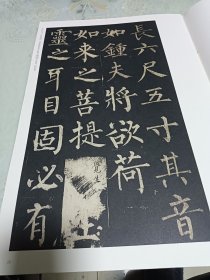 長六尺五寸其音
如鍾夫將欲荷
如来之菩提
靈之耳目固必有